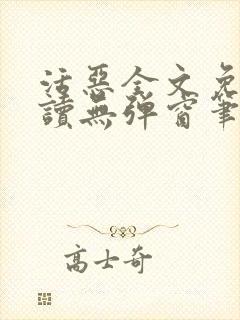 活惡全文免
讀無彈窗筆
高士奇